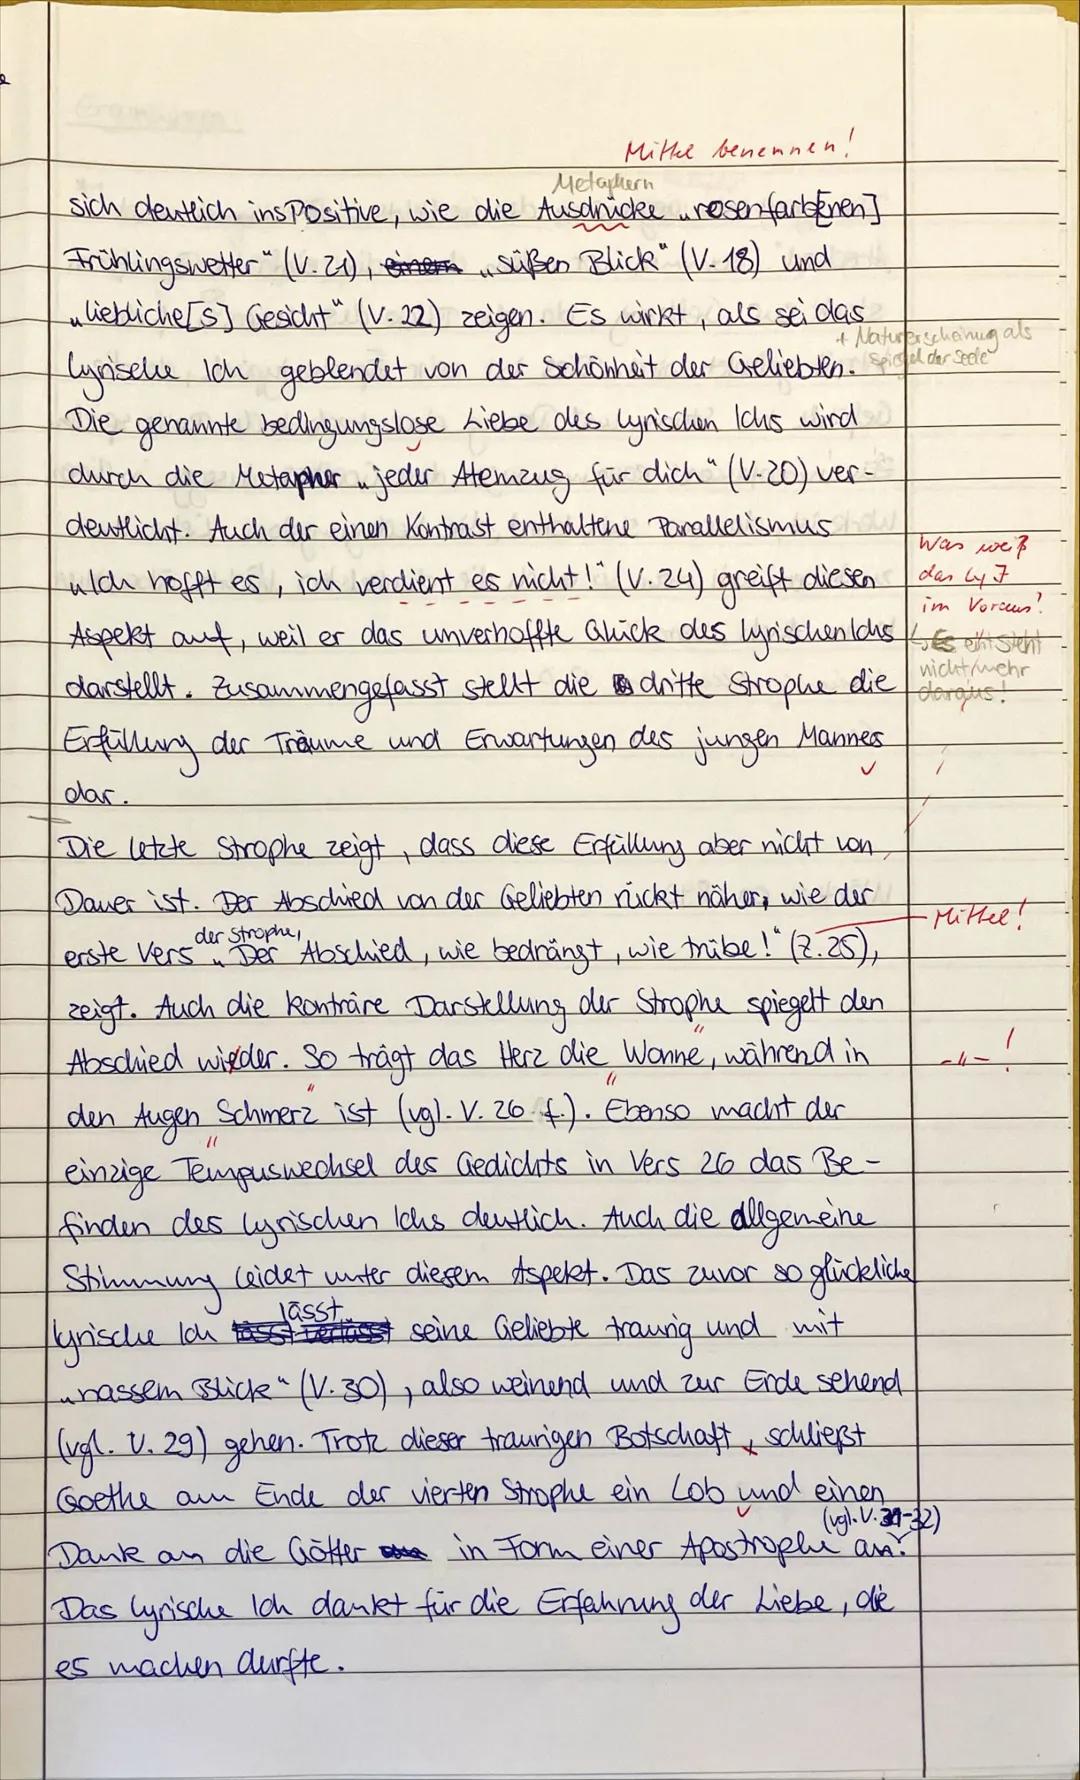 Mittel benennen!
Metaphern
sich deutlich ins Positive, wie die Ausdrücke „rosenfarb[enen]
Frühlingswetter“ (V. 21), einem „süßen Blick“ (V. 18) und
„liebliche[s] Gesicht“ (V. 22) zeigen. Es wirkt, als sei das
+ Naturerscheinung als
Spiegel der Seele
lyrische Ich geblendet von der Schönheit der Geliebten.
Die genannte bedingungslose Liebe des lyrischen Ichs wird
durch die Metapher „jeder Atemzug für dich“ (V. 20) ver-
deutlicht. Auch der einen Kontrast enthaltene Parallelismus
Was weiß
„Ich hofft es, ich verdient es nicht!“ (V. 24) greift diesen
das Ly I
im Voraus?
Aspekt auf, weil er das unverhoffte Glück des lyrischen Ichs
↳ Es entsteht
nicht mehr
daraus!
darstellt. Zusammengefasst stellt die dritte Strophe die
Erfüllung der Träume und Erwartungen des jungen Mannes
dar.
Die letzte Strophe zeigt, dass diese Erfüllung aber nicht von
Dauer ist. Der Abschied von der Geliebten rückt näher, wie der
Mittel!
der Strophe,
erste Vers „Der Abschied, wie bedrängt, wie trübe!“ (Z. 25),
zeigt. Auch die konträre Darstellung der Strophe spiegelt den
Abschied wieder. So trägt das Herz die "Wonne", während in
-"- !
den Augen "Schmerz" ist (vgl. V. 26 f.). Ebenso macht der
einzige Tempuswechsel des Gedichts in Vers 26 das Be-
finden des lyrischen Ichs deutlich. Auch die allgemeine
Stimmung leidet unter diesem Aspekt. Das zuvor so glückliche
lässt
lyrische Ich seine Geliebte traurig und mit
„nassem Blick“ (V. 30), also weinend und zur Erde sehend
(vgl. V. 29) gehen. Trotz dieser traurigen Botschaft, schließt
Goethe am Ende der vierten Strophe ein Lob und einen
(vgl. V. 31-32)
Dank an die Götter in Form einer Apostrophe an.
Das lyrische Ich dankt für die Erfahrung der Liebe, die
es machen durfte.